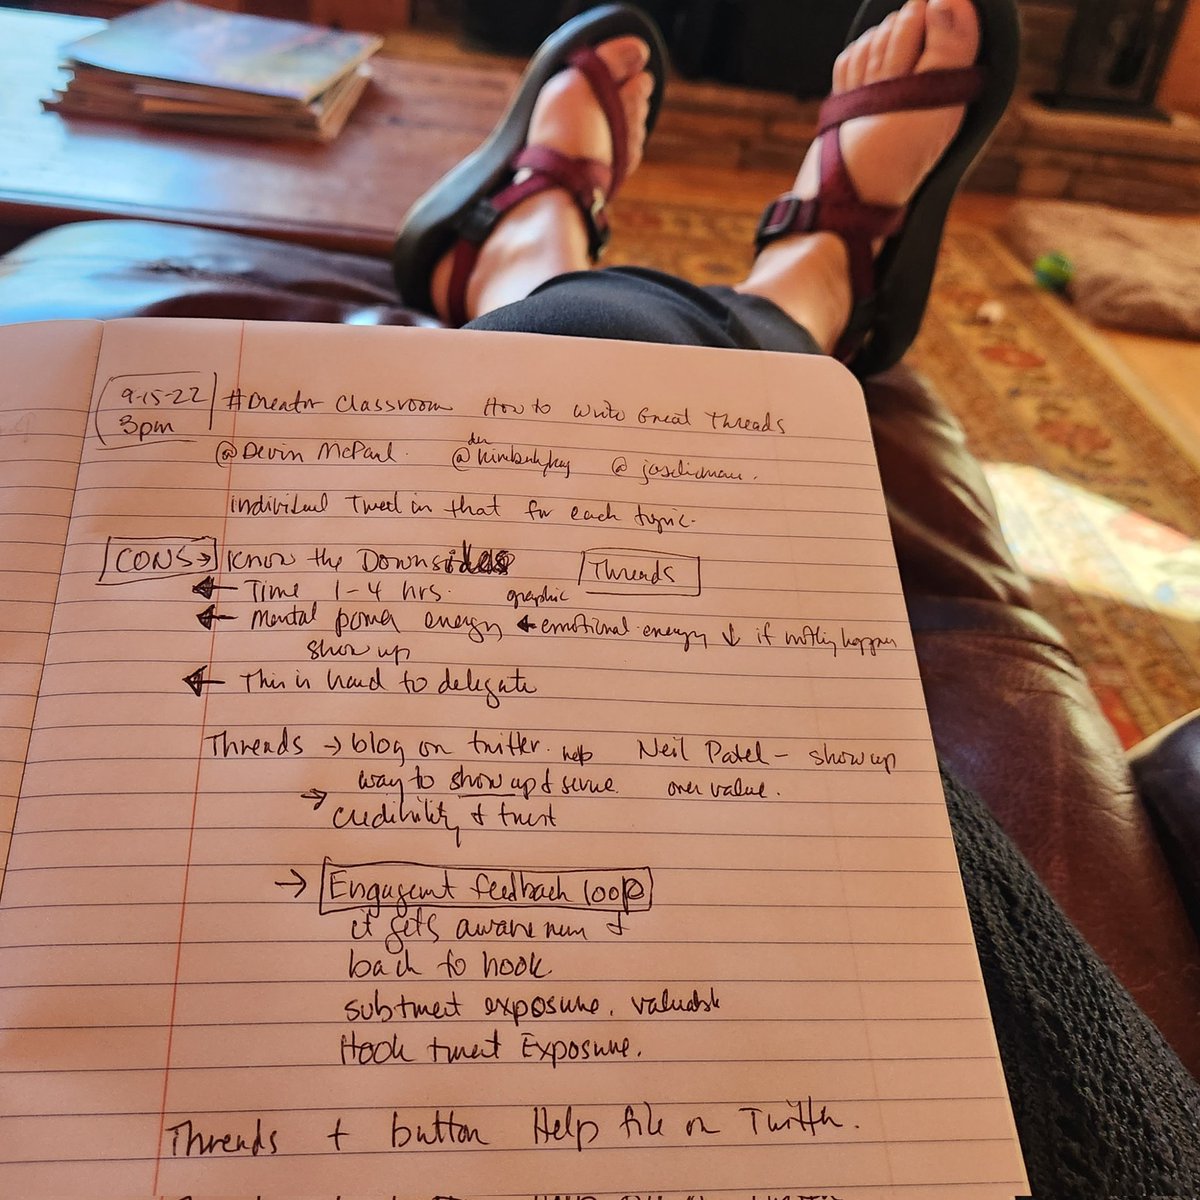 9-15-22 #Creator Classroom How to Write Great Threads
3pm
@Devin McPaul. @ @
individual Tweet in that for each topic.
CONS → Know the Downsides Threads
← Time 1-4 hrs. graphic
← Mental power energy ← emotional energy ↓ if nothing happen
show up
← This is hard to delegate
Threads → blog on twitter. help Neil Patel - show up
way to show up & serve. over value.
→ credibility & trust
→ Engagement feedback loop
it gets awareness &
back to hook
subtweet exposure. valuable
Hook tweet Exposure.
Threads + button Help file on Twitter.